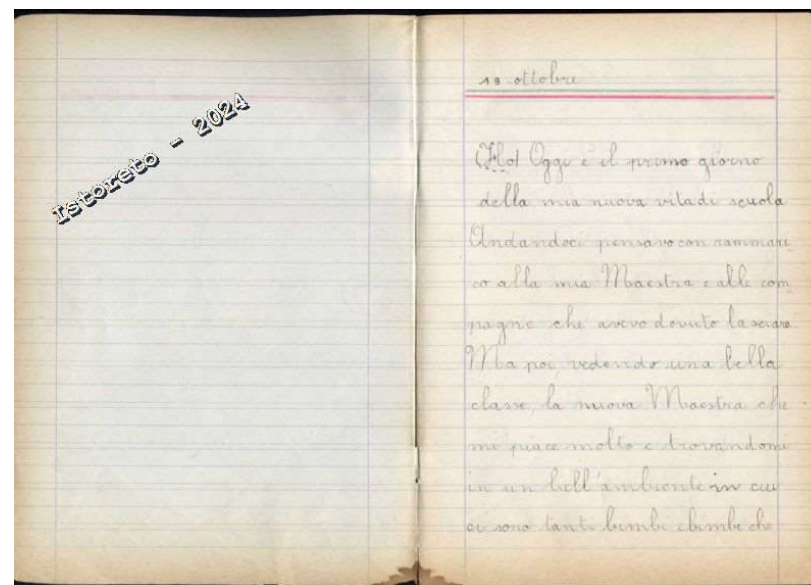 Istoreto - 2024
18 ottobre
Oggi è il primo giorno
della mia nuova vita di scuola
Andandoci pensavo con rammari
co alla mia Maestra e alle com
pagne che avevo dovuto lasciare
Ma poi, vedendo una bella
classe, la nuova Maestra che
mi piace molto e trovandomi
in un bell'ambiente in cui
ci sono tanti bimbi e bimbe che